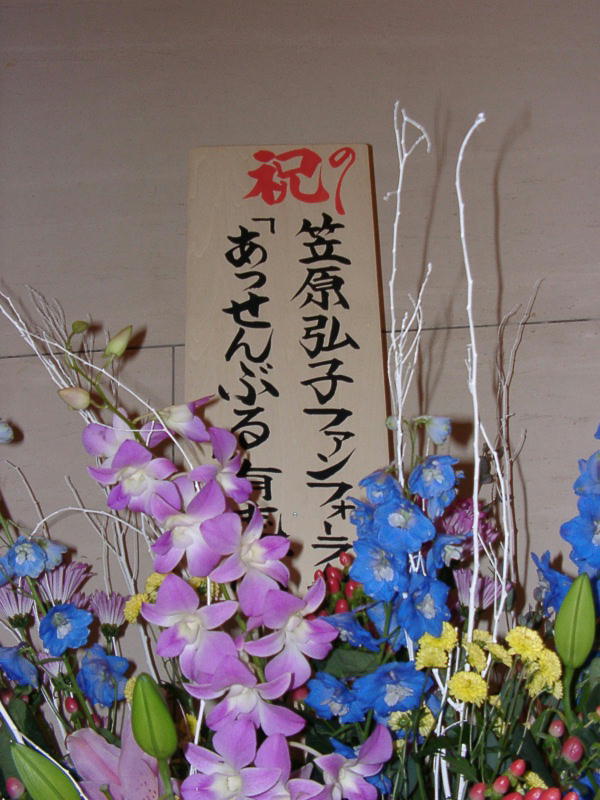 祝の
笠原弘子ファンフォーラ
「あっせんぶる有